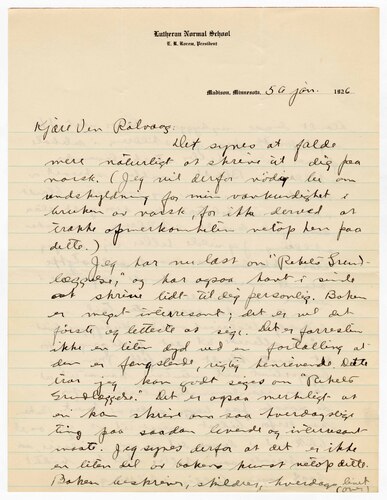 Lutheran Normal School
E. R. Rorem, President
Madison, Minnesota, 5te jan. 1926
Kjære Ven Rölvaag:
Det synes at falde
mere naturligt at skrive til dig paa
norsk. (Jeg vil derfor nödig be om
undskyldning for min vankundighet i
bruken av norsk, for ikke derved at
trække opmerksomheten netop hen paa
dette.)
Jeg har nu læst om "Rikets Grund-
læggelse," og har ogsaa havt i sinde
at skrive lidt til dig personlig. Boken
er meget interessant; det er vel det
förste og letteste at sige. Det er forresten
ikke en liten dyd ved en fortælling at
den er fengslende, rigtig henrivende. Dette
tror jeg kan godt siges om "Rikets
Grundlæggelse." Det er ogsaa merkeligt at
en kan skrive om saa hverdagslige
ting paa saadan levende og interessant
maate. Jeg synes derfor at det er ikke
en liten del av bokens kunst netop dette.
Boken beskriver, skildrer, hverdags livet
(over)